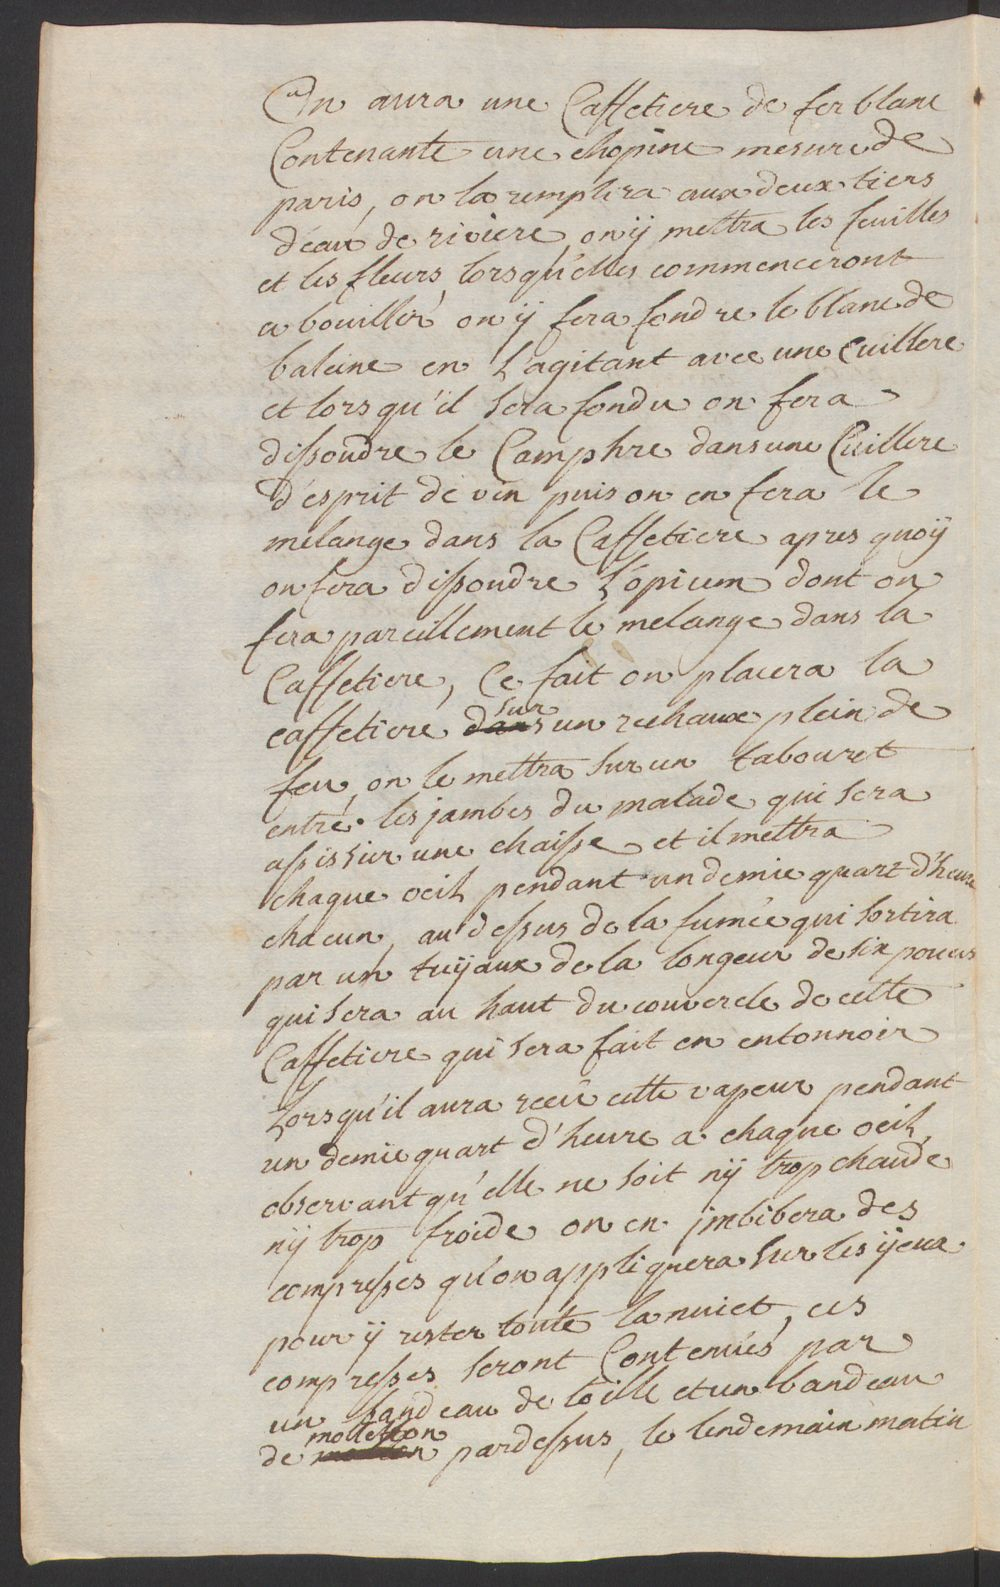 On aura une Caffetiere de fer blanc
Contenante une chopine mesure de
paris, on la remplira aux deux tiers
d'eau de riviere, on ÿ mettra les feuilles
et les fleurs, lorsqu'elles commenceront
a bouillir on ÿ fera fondre le blanc de
baleine en L'agitant avec une Cuillere
et lors qu'il sera fondu on fera
dissoudre le Camphre dans une Cuillere
d'esprit de vin puis on en fera le
melange dans la Caffetiere apres quoÿ
on fera dissoudre L'opium dont on
fera pareillement le melange dans la
Caffetiere, Ce fait on placera la
caffetiere dans sur un rechaux plein de
feu, on le mettra sur un tabouret
entre les jambes du malade qui sera
assis sur une chaisse et il mettra
chaque oeil pendant un demie quart d'heure
chacun, au dessus de la fumée qui sortira
par un tuÿaux de la longeur de six pouces
qui sera au haut du couvercle de cette
Caffetiere qui sera fait en entonnoir
Lorsqu'il aura recû cette vapeur pendant
un demie quart d'heure a chaque oeil,
observant qu'elle ne soit nÿ trop chaude
nÿ trop froide on en jmbibera des
compresses qu'on appliquera sur les ÿeux
pour ÿ rester toute la nuict, ces
compresses seront Contenües par
un bandeau de toille et un bandeau
de molleton pardessus, le lendemain matin